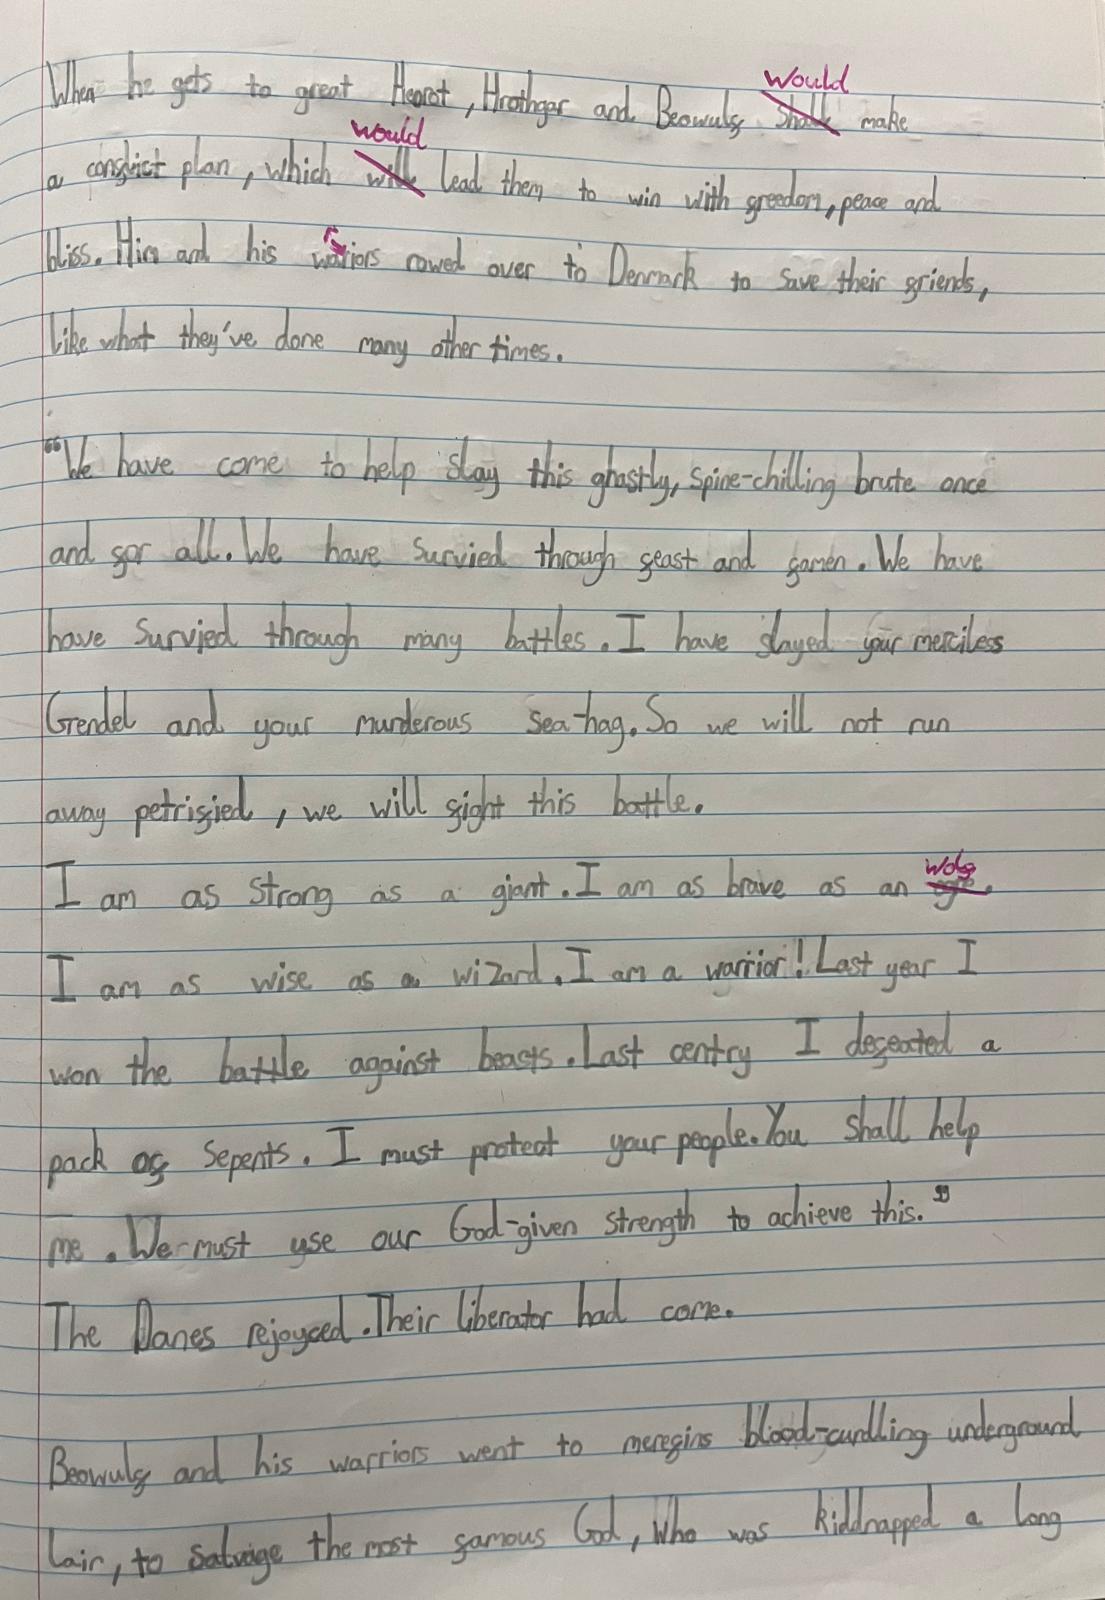 When he gets to great Heorot, Hrothgar and Beowulf would make
a conflict plan, which would lead them to win with freedom, peace and
bliss. Him and his warriors rowed over to Denmark to save their friends,
like what they've done many other times.
"We have come to help slay this ghastly, spine-chilling brute once
and for all. We have survied through feast and famen. We have
have survied through many battles. I have slayed your merciless
Grendel and your murderous sea-hag. So we will not run
away petrified, we will fight this battle.
I am as strong as a giant. I am as brave as an wolf.
I am as wise as a wizard. I am a warrior! Last year I
won the battle against beasts. Last centry I defeated a
pack of sepents. I must protect your people. You shall help
me. We must use our God-given strength to achieve this."
The Danes rejoyced. Their liberator had come.
Beowulf and his warriors went to merefins blood-curdling underground
lair, to salvage the most famous God, Who was kiddnapped a long